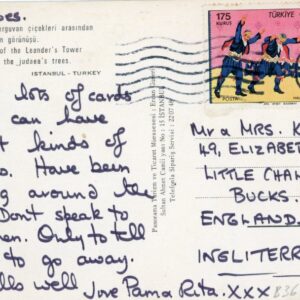 oes.
erguvan çiçekleri arasından
n görünüşü.
of the Leander's Tower
the judaea's trees.
ISTANBUL - TURKEY
lots of cards
can have
t kinds of
o. Have been
g around the
Don't speak to
en. Only to tell
to go away.
lls well
love Pam a Rita. XXX
Panorama Turizm ve Ticaret Müessesesi : Ercan
Sultan Ahmet Camii yanı No : 15 İSTANBUL
Telefonla Sipariş Servisi : 22 07 48
175
KURUŞ
TÜRKİYE
POSTA
Mr a MRS.
49, ELIZABET
LITTLE CHA
BUCKS.
ENGLAND
INGLITERR
836